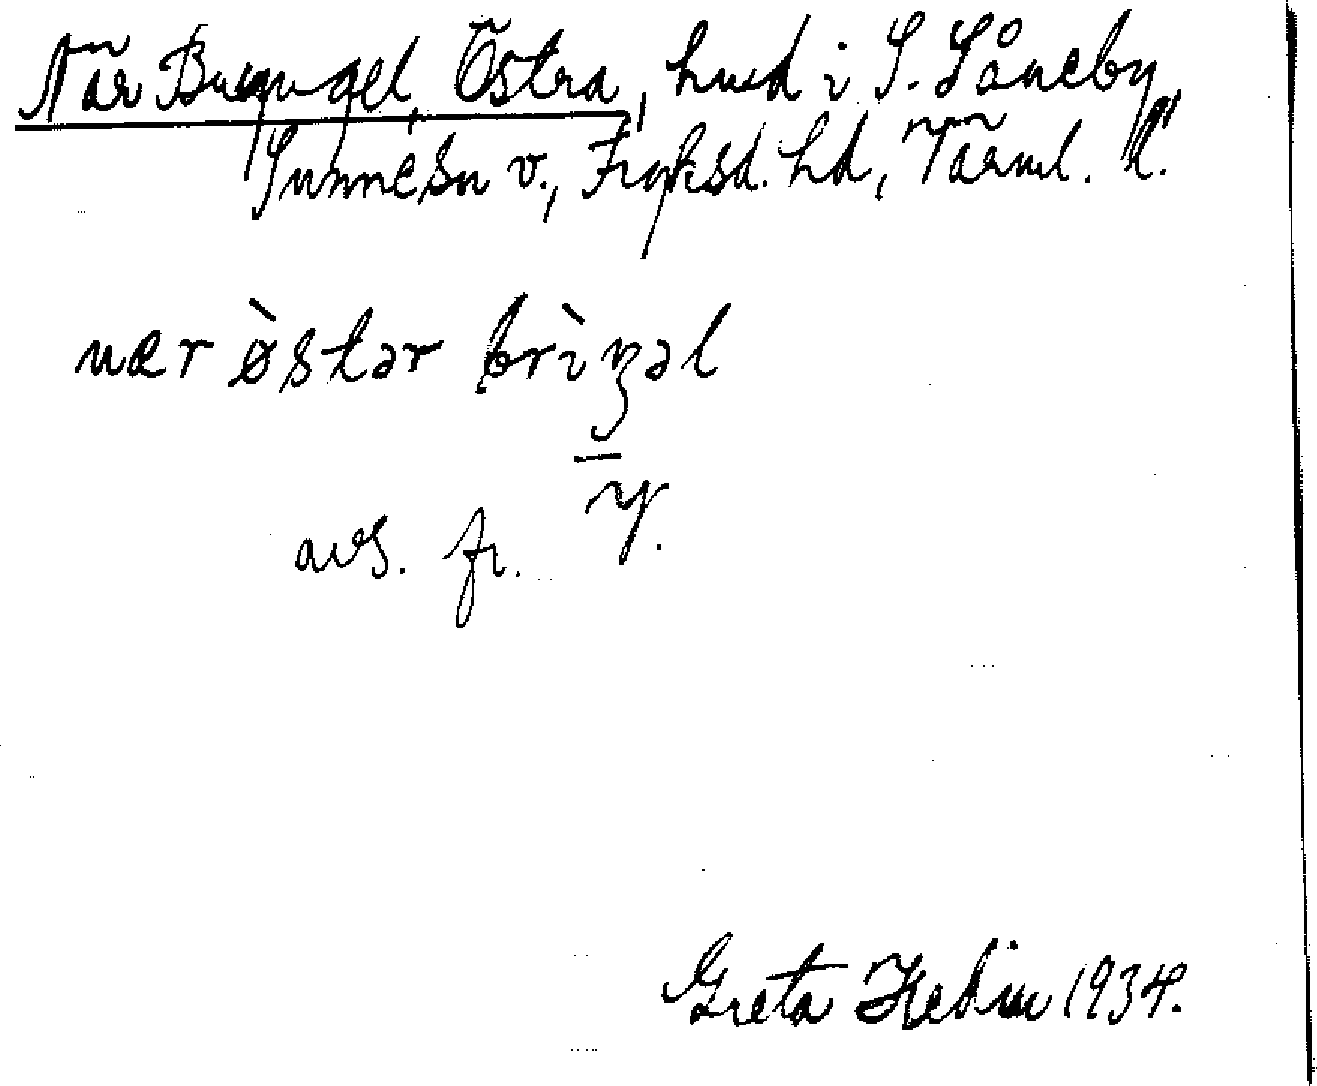 När Bryngel, Östra, hmd i S. Såneby,
Sunne sn v., Fryksd. hd, Värml. l.
nær òstər brìŋəl
y.
avs. fr.
Greta Hedin 1934.